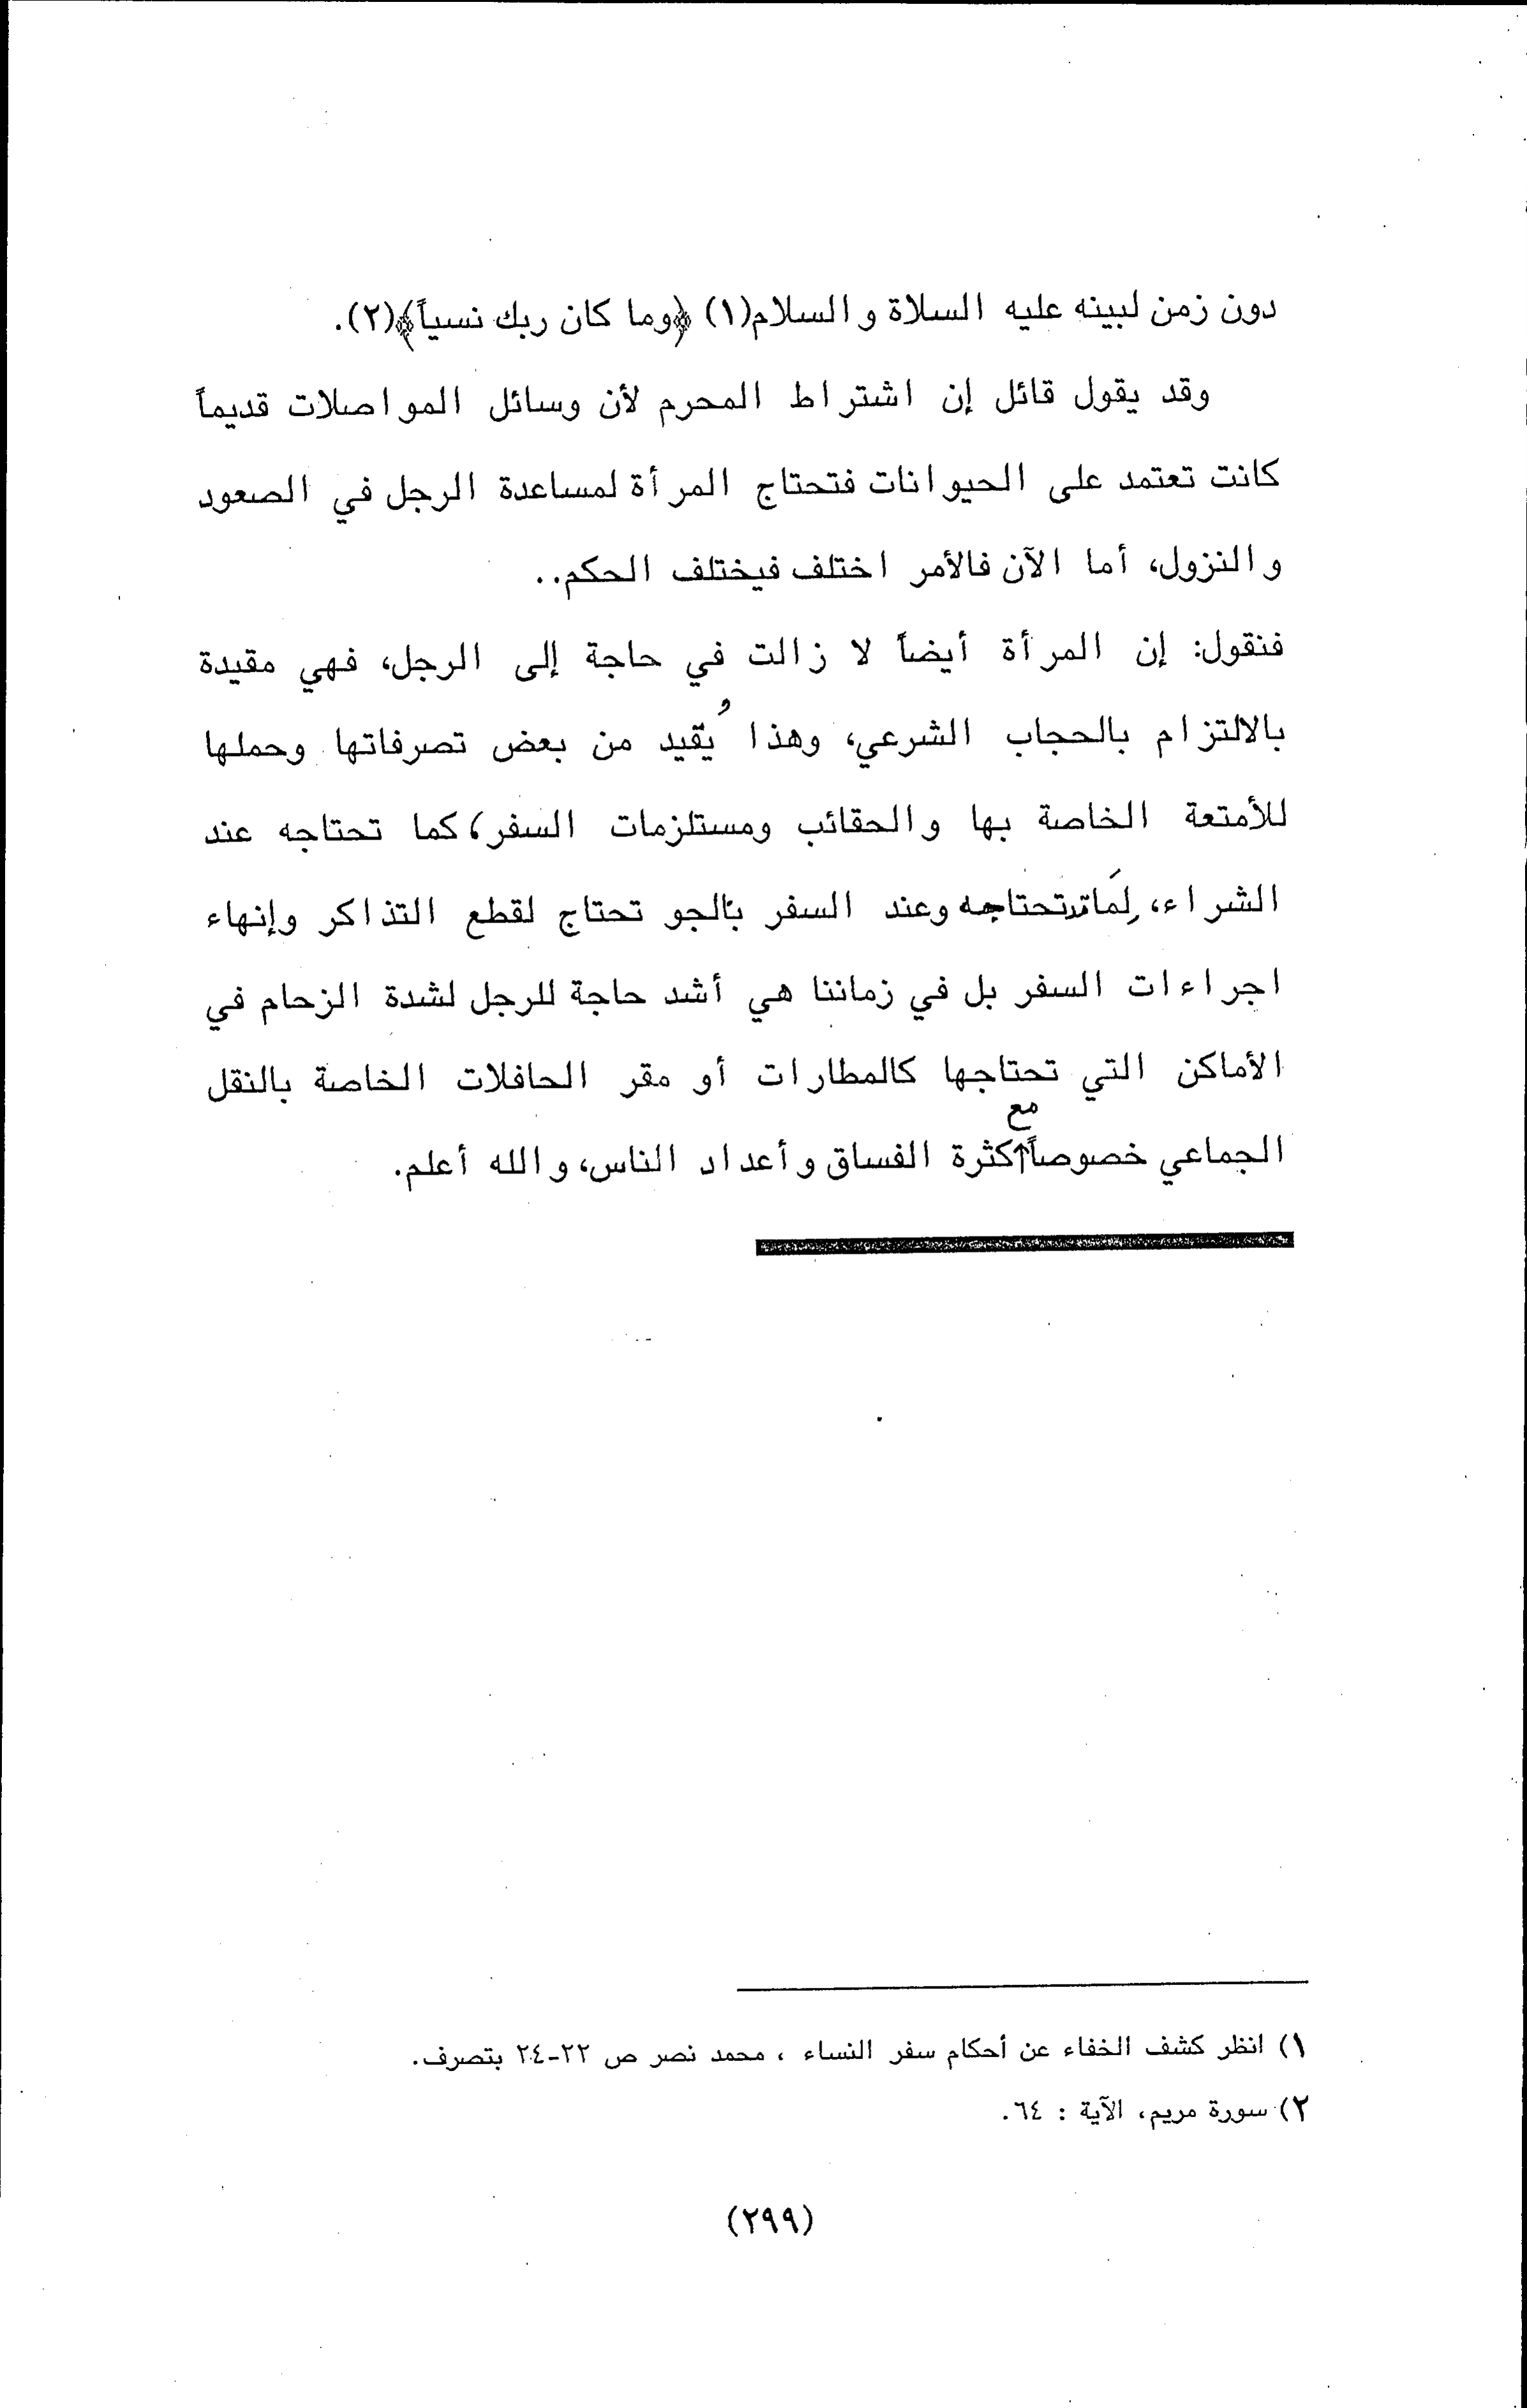 دون زمن لبينه عليه السلاة والسلام(١) ﴿وما كان ربك نسياً﴾(٢).
وقد يقول قائل إن اشتراط المحرم لأن وسائل المواصلات قديماً
كانت تعتمد على الحيوانات فتحتاج المرأة لمساعدة الرجل في الصعود
والنزول، أما الآن فالأمر اختلف فيختلف الحكم..
فنقول: إن المرأة أيضاً لا زالت في حاجة إلى الرجل، فهي مقيدة
بالالتزام بالحجاب الشرعي، وهذا يُقيد من بعض تصرفاتها وحملها
للأمتعة الخاصة بها والحقائب ومستلزمات السفر، كما تحتاجه عند
الشراء، لِمَا تحتاجه وعند السفر بالجو تحتاج لقطع التذاكر وإنهاء
اجراءات السفر بل في زماننا هي أشد حاجة للرجل لشدة الزحام في
الأماكن التي تحتاجها كالمطارات أو مقر الحافلات الخاصة بالنقل
الجماعي خصوصاً مع كثرة الفساق وأعداد الناس، والله أعلم.
١) انظر كشف الخفاء عن أحكام سفر النساء ، محمد نصر ص ٢٢-٢٤ بتصرف.
٢) سورة مريم، الآية : ٦٤.
(٢٩٩)